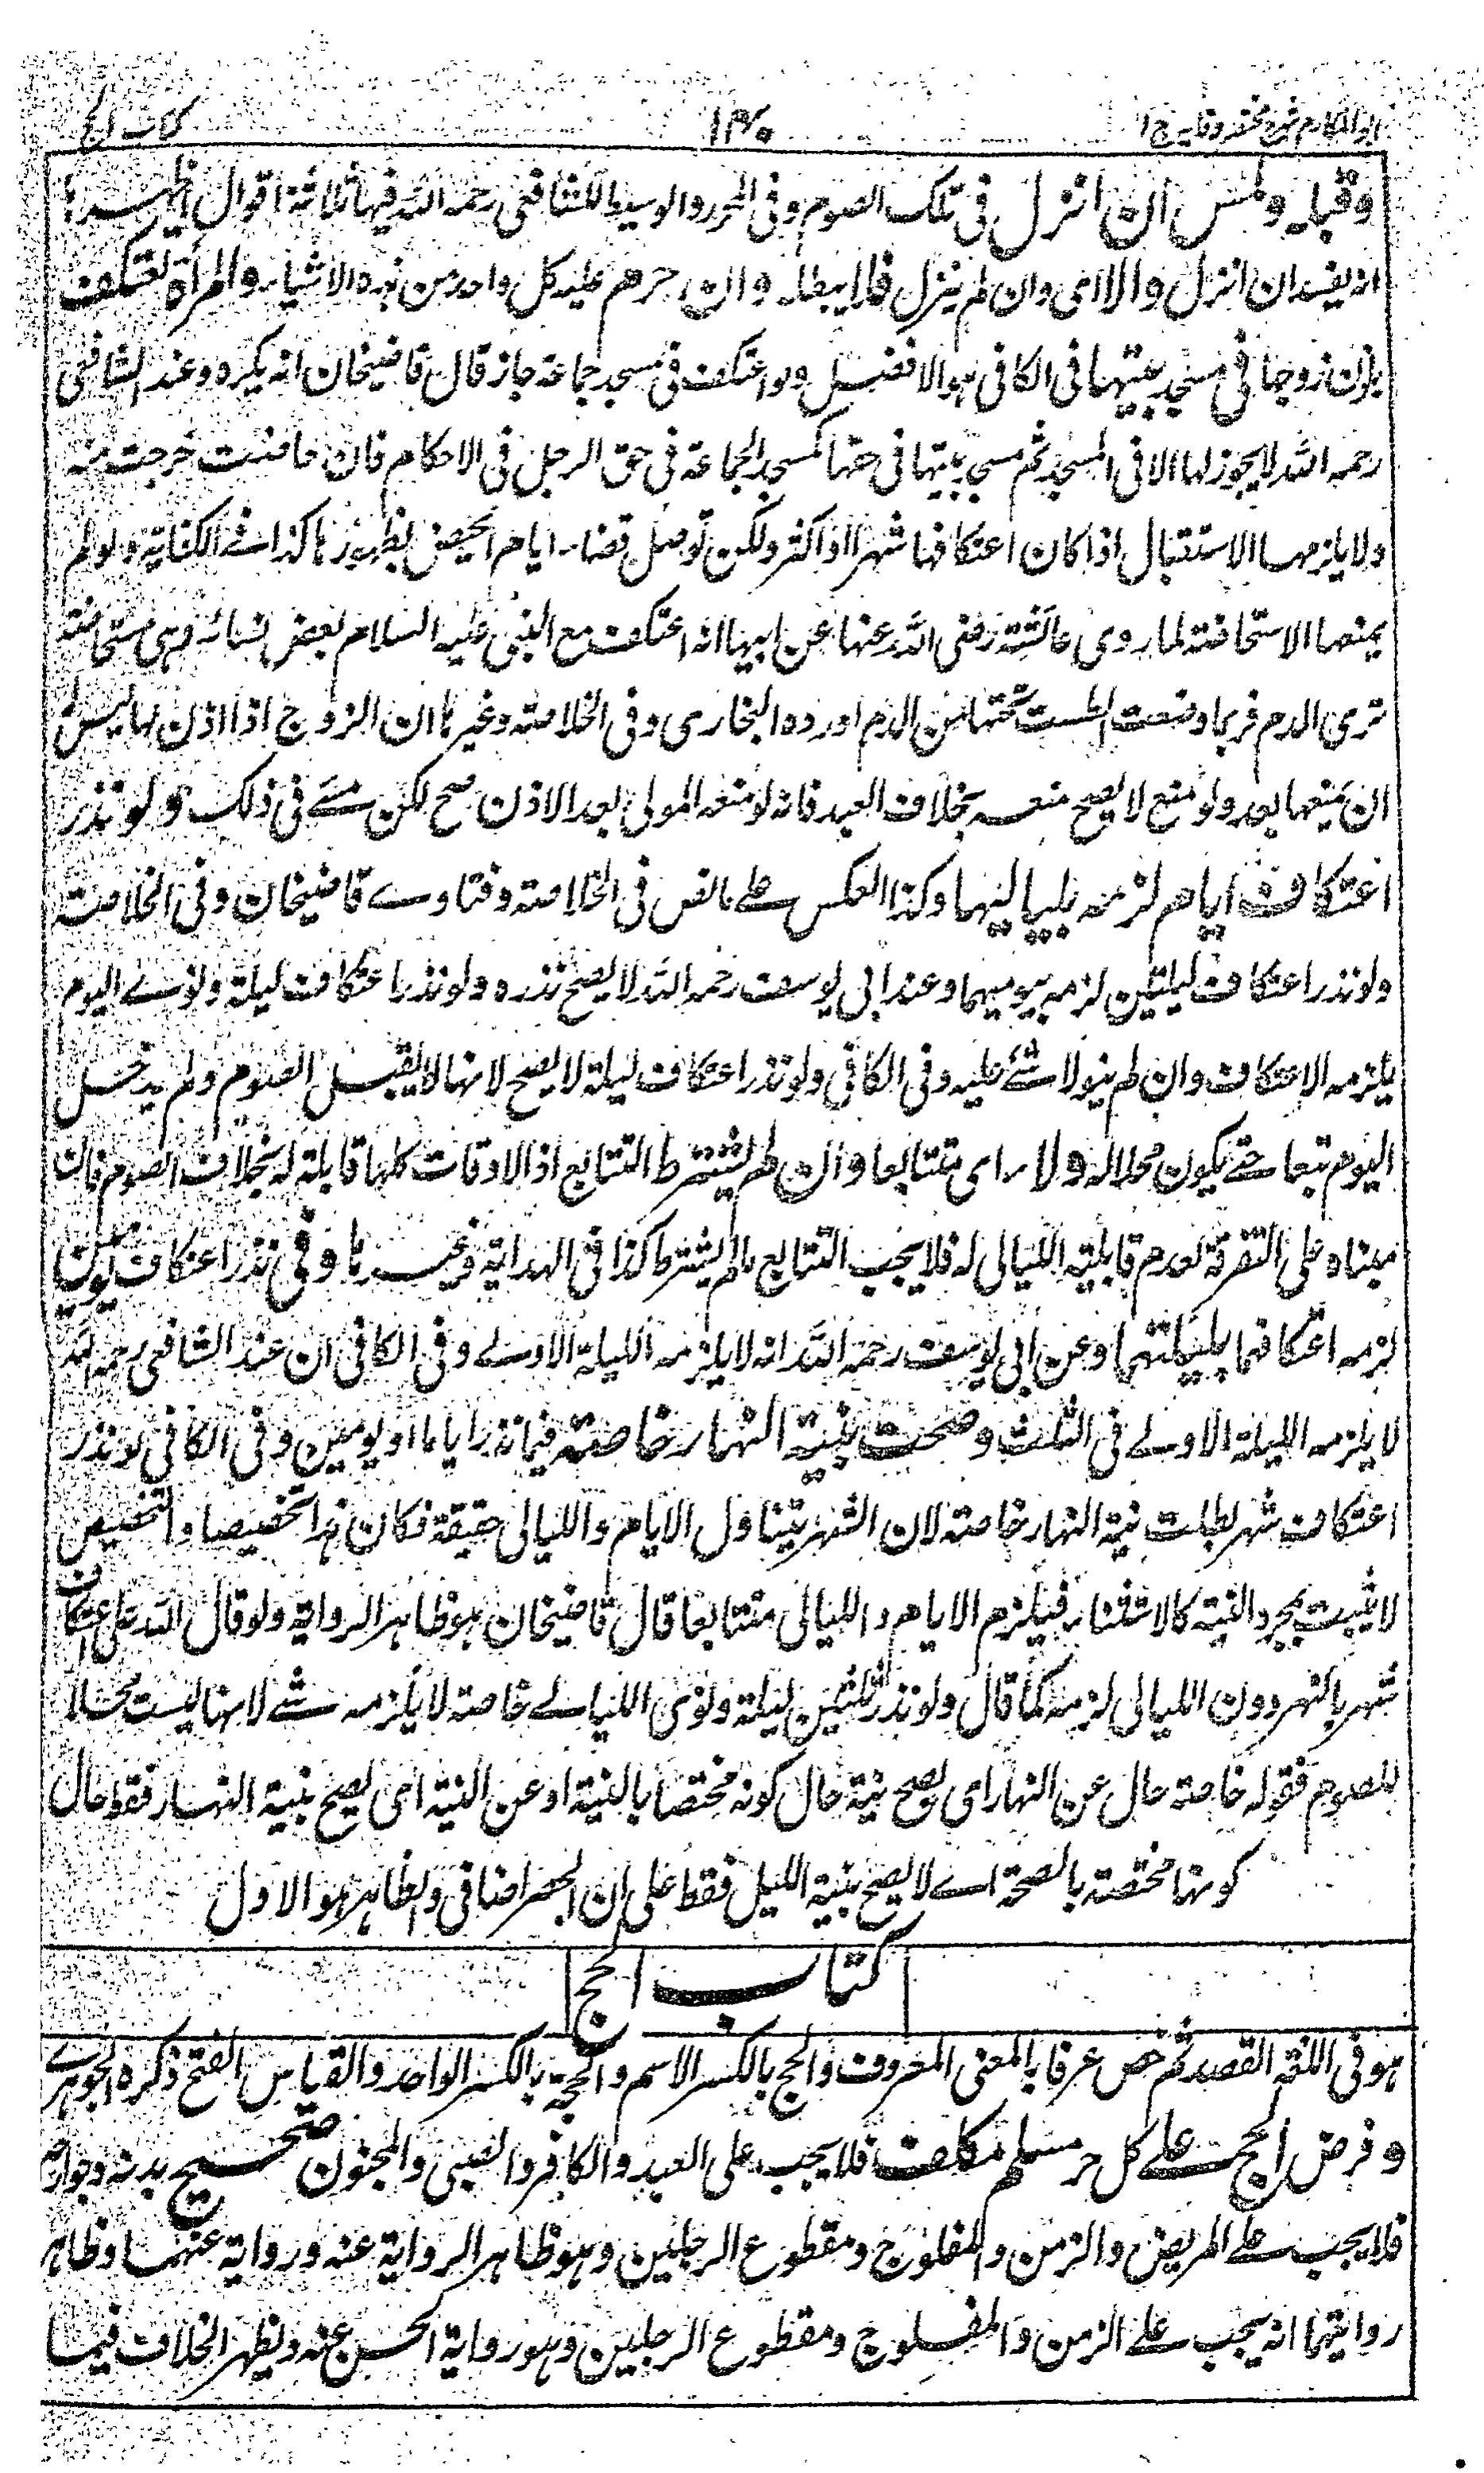 ابو المكارم شرح مختصر وقايه ج ١ ١٣٠ كتاب الحج
وقبلة ولمس ان انزل فى تلك الصوم وفى المحرر والوسيط للشافعى رحمه الله فيها ثلاثة اقوال اظهرها
انه يفسد ان انزل والا اى وان لم ينزل فلا يبطله وان حرم عليه كل واحد من هذه الاشياء والمرأة تعتكف
باذن زوجها فى مسجد بيتها فى الكافى هو الافضل ولو اعتكفت فى مسجد جماعة جاز قال قاضيخان انه يكره وعند الشافعى
رحمه الله لا يجوز لها الا فى المسجد ثم مسجد بيتها فى حقها كمسجد الجماعة فى حق الرجل فى الاحكام فان حاضت خرجت منه
ولا يلزمها الاستقبال اذا كان اعتكافها شهرا او اكثر ولكن توصل قضاء ايام الحيض بطهرها كذا فے الكفاية ولو لم
يمنعها الاستحاضة لما روى عائشة رضى الله عنها عن ابيها انه اعتكفت مع النبى عليه السلام بعض نسائه وهى مستحاضة
ترى الدم فربما وضعت الطست تحتها من الدم اورده البخارى وفى الخلاصة وغيرها ان الزوج اذا اذن لها ليس له
ان يمنعها بعد ولو منع لا يصح منعه بخلاف العبد فانه لو منعه المولى بعد الاذن صح لكن مسئ فى ذلك ولو نذر
اعتكاف ايام لزمه بلياليها وكذا العكس علے ما نص فى الخلاصة وفتاوے قاضيخان وفى الخلاصة
ولو نذر اعتكاف ليلتين لزمه بيوميهما وعند ابى يوسف رحمه الله لا يصح نذره ولو نذر اعتكاف ليلة ونوے اليوم
يلزمه الاعتكاف وان لم ينو لا شئے عليه وفى الكافى ولو نذر اعتكاف ليلة لا يصح لانها لا يقبل الصوم ولم يدخل
اليوم تبعا حتے يكون محلا له ولاء اى متتابعا وان لم يشترط التتابع اذ الاوقات كلها قابلة له بخلاف الصوم فان
مبناه على التفرقة لعدم قابلية الليالى له فلا يجب التتابع مالم يشترط كذا فى الهداية وغيرها وفى نذر اعتكاف يومين
لزمه اعتكافهما بليلتهما وعن ابى يوسف رحمه الله انه لا يلزمه الليلة الاولے وفى الكافى ان عند الشافعى رحمه الله
لا يلزمه الليلة الاولے فى الثلث وصحت بنية النهار خاصة فيما نذر اياما او يومين وفى الكافى لو نذر
اعتكاف شهر بطلت نية النهار خاصة لان الشهر يتناول الايام والليالى حقيقة فكان هذا تخصيصا والتخصيص
لا يثبت بمجرد النية كالاستثناء فيلزم الايام والليالى متتابعا قال قاضيخان هو ظاهر الرواية ولو قال لله على اعتكاف
شهر بالنهر دون الليالى لزمه كما قال ولو نذر ثلثين ليلة ونوى الليالے خاصة لا يلزمه شے لانها ليست محلا
للصوم فقوله خاصة حال عن النهار اى يصح نية حال كونه مختصا بالنية او عن النية اى يصح بنية النهار فقط حال
كونها مختصة بالصحة اے لا يصح بنية الليل فقط على ان الحصر اضافى والظاهر هو الاول
كتاب الحج
هو فى اللغة القصد ثم خص عرفا بالمعنى المعروف والحج بالكسر الاسم والحجة بالكسر الواحد والقياس الفتح ذكره الجوهرے
وفرض الحج علے كل حر مسلم مكلف فلا يجب على العبد والكافر والصبى والمجنون صحيح بدنه وجوارحه
فلا يجب علے المريض والزمن والمفلوج ومقطوع الرجلين وهو ظاهر الرواية عنه ورواية عنهما وظاهر
روايتهما انه يجب علے الزمن والمفلوج ومقطوع الرجلين وهو رواية الحسن عنه ويظهر الخلاف فيما